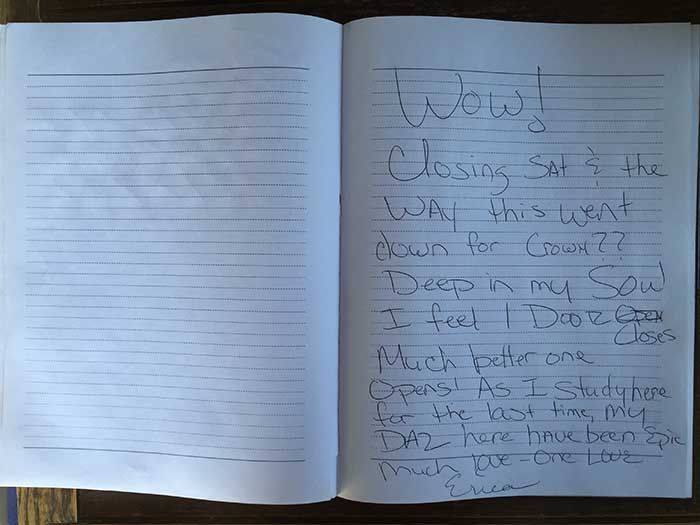 Wow!
Closing SAT & the
WAY this went
down for Crown??
Deep in my Soul
I feel 1 Door
Closes
Much better one
Opens! As I Study here
for the last time, my
here have been Epic
Much love - One Love
Erica